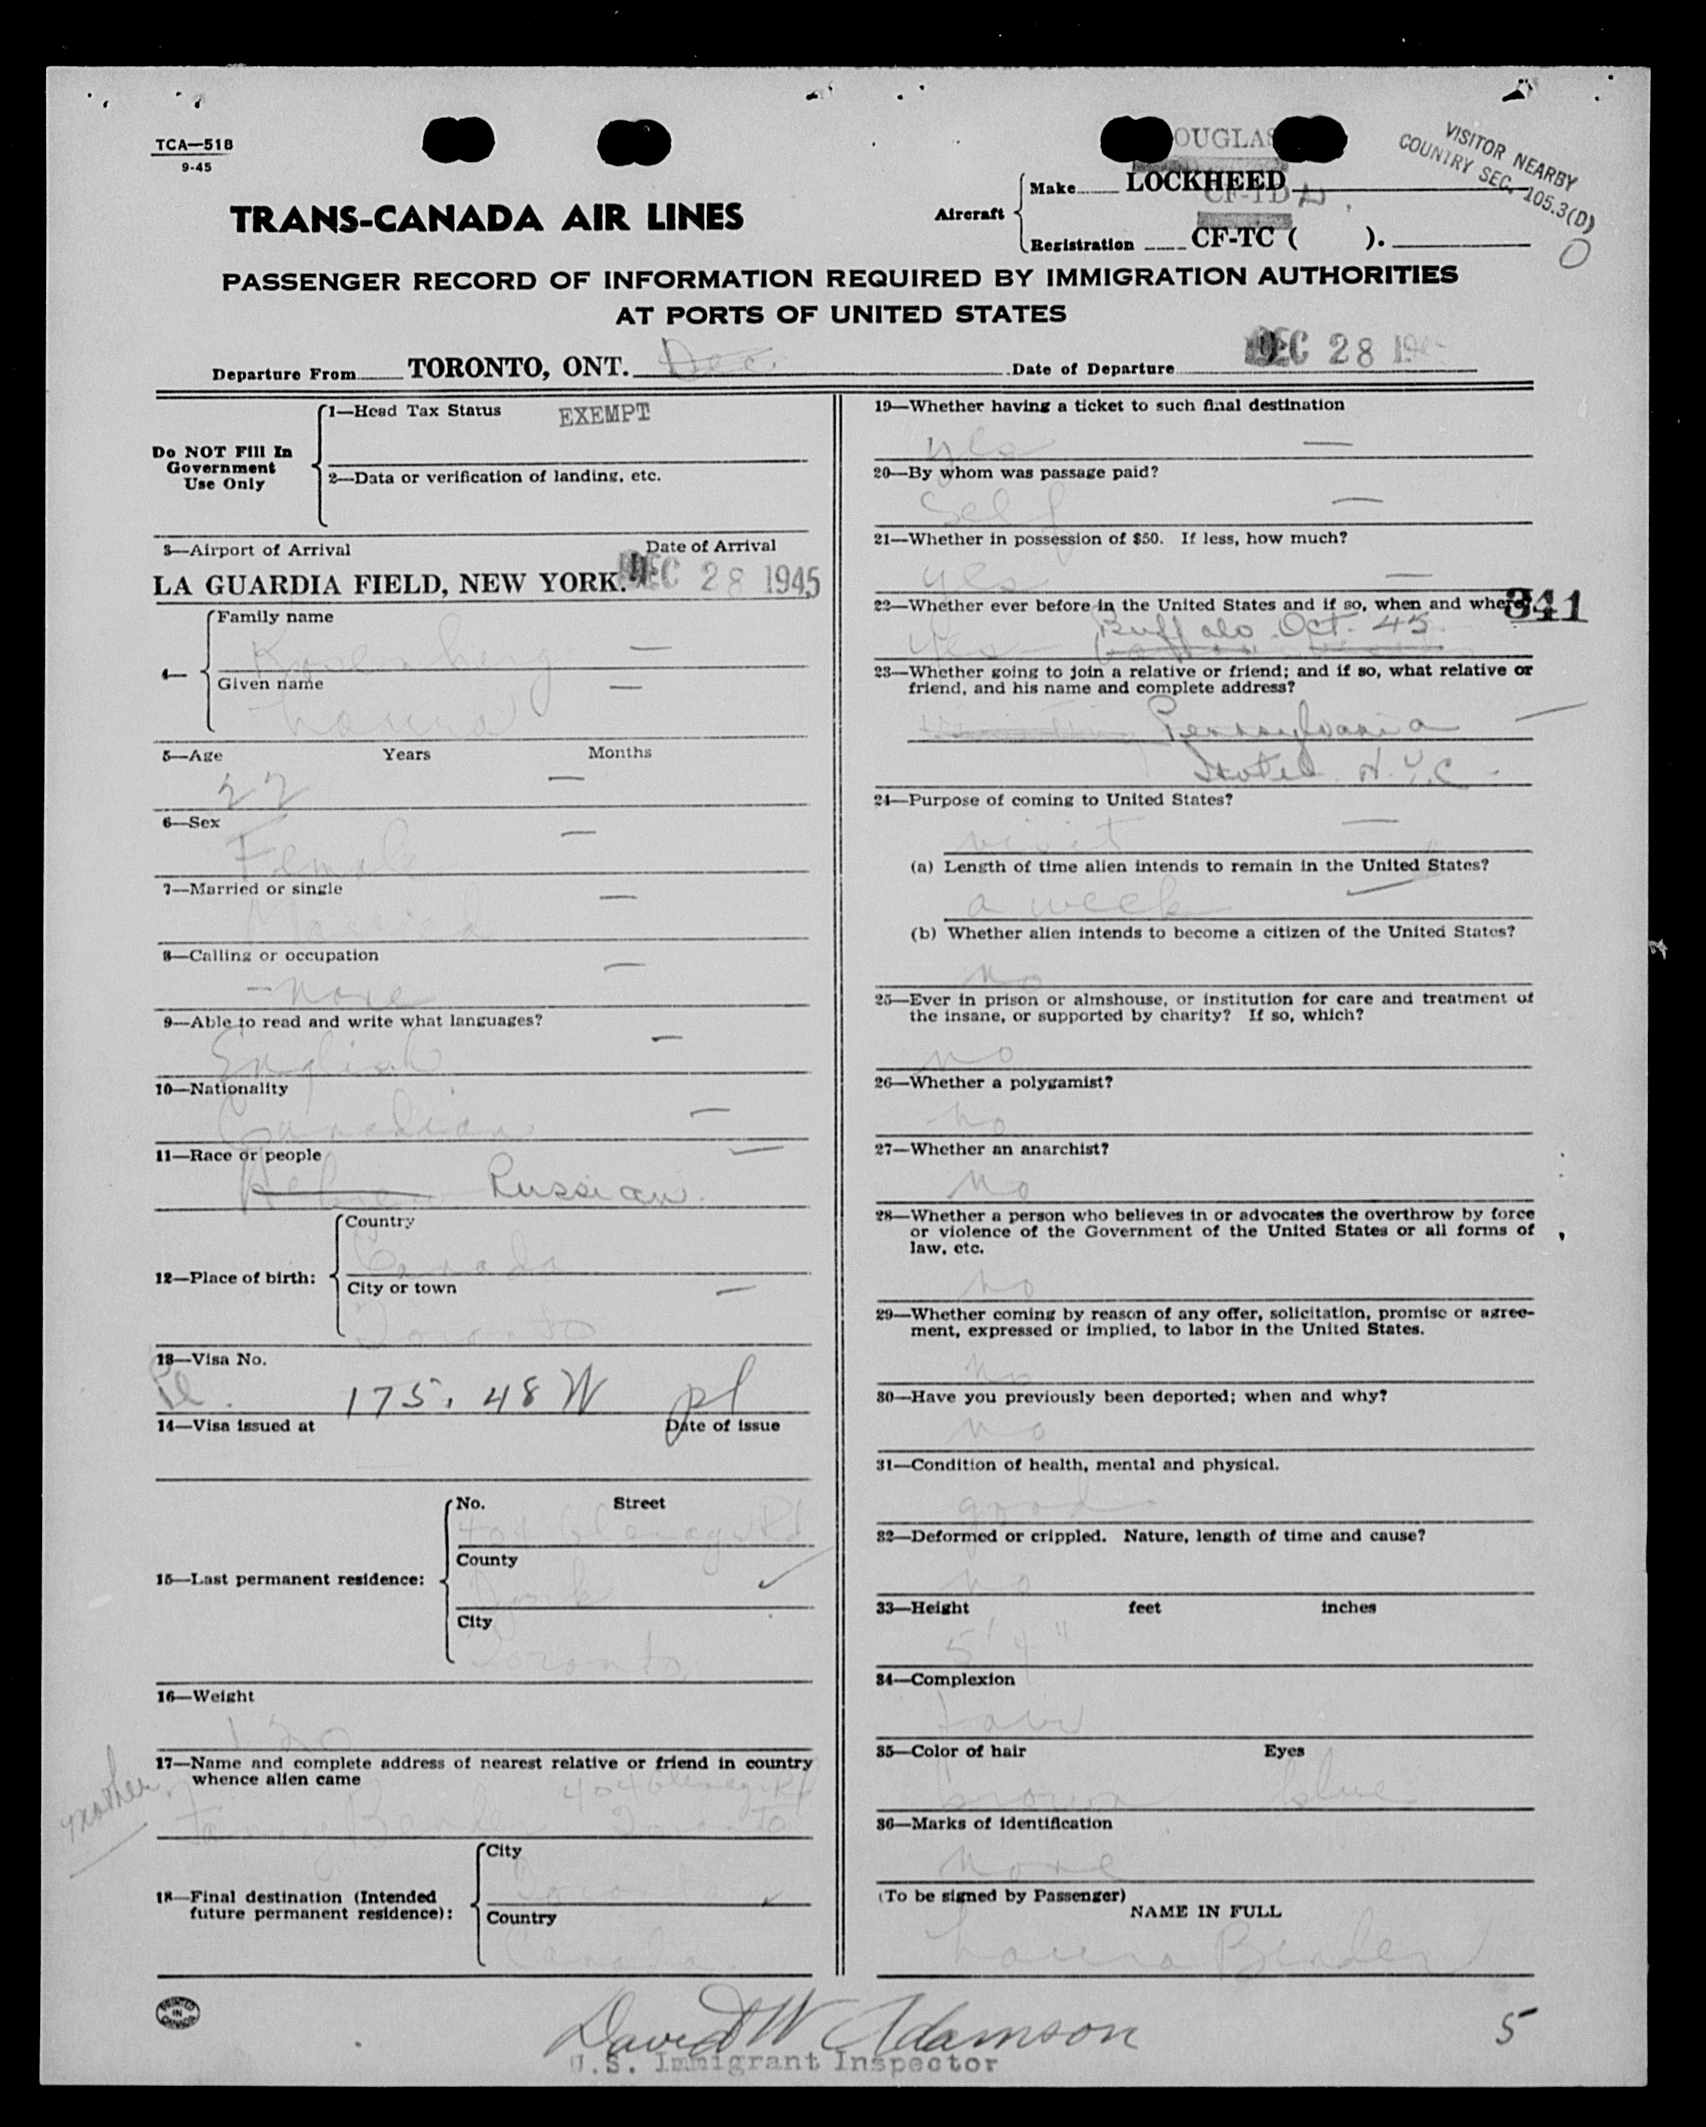 TCA—518
9-45
TRANS-CANADA AIR LINES
OUGLAS
Aircraft
Make LOCKHEED
CF-TD
Registration CF-TC ( ).
VISITOR NEARBY
COUNTRY SEC. 105.3(D)
PASSENGER RECORD OF INFORMATION REQUIRED BY IMMIGRATION AUTHORITIES
AT PORTS OF UNITED STATES
Departure From TORONTO, ONT. Dec. Date of Departure DEC 28 194
Do NOT Fill In
Government
Use Only
1—Head Tax Status EXEMPT
2—Data or verification of landing, etc.
3—Airport of Arrival Date of Arrival
LA GUARDIA FIELD, NEW YORK. DEC 28 1945
4—
Family name
Rosenberg —
Given name —
Laura
5—Age Years Months
22 —
6—Sex
Female —
7—Married or single
Married —
8—Calling or occupation
- none —
9—Able to read and write what languages?
English —
10—Nationality
Canadian —
11—Race or people —
Hebrew Russian.
12—Place of birth:
Country
Canada
City or town —
Toronto
13—Visa No.
175. 48 W pl
14—Visa issued at Date of issue
15—Last permanent residence:
No. Street
404 Glencgy Rd
County
York ✓
City
Toronto
16—Weight
120
17—Name and complete address of nearest relative or friend in country
whence alien came
mother 404 Rd
Toronto
18—Final destination (Intended
future permanent residence):
City
Toronto ✓
Country
Canada
19—Whether having a ticket to such final destination
yes —
20—By whom was passage paid?
Self —
21—Whether in possession of $50. If less, how much?
yes —
22—Whether ever before in the United States and if so, when and where?
341
Yes — Buffalo Oct. 45
23—Whether going to join a relative or friend; and if so, what relative or
friend, and his name and complete address?
Pennsylvania —
Hotel N.Y.C -
24—Purpose of coming to United States?
visit —
(a) Length of time alien intends to remain in the United States?
a week
(b) Whether alien intends to become a citizen of the United States?
no
25—Ever in prison or almshouse, or institution for care and treatment of
the insane, or supported by charity? If so, which?
no
26—Whether a polygamist?
no
27—Whether an anarchist?
no
28—Whether a person who believes in or advocates the overthrow by force
or violence of the Government of the United States or all forms of
law, etc.
no
29—Whether coming by reason of any offer, solicitation, promise or agree-
ment, expressed or implied, to labor in the United States.
no
30—Have you previously been deported; when and why?
no
31—Condition of health, mental and physical.
good
32—Deformed or crippled. Nature, length of time and cause?
no
33—Height feet inches
5' 4"
34—Complexion
fair
35—Color of hair Eyes
brown blue
36—Marks of identification
none
(To be signed by Passenger)
NAME IN FULL
Laura
David W Adamson
U.S. Immigrant Inspector
5
PRINTED
IN
CANADA